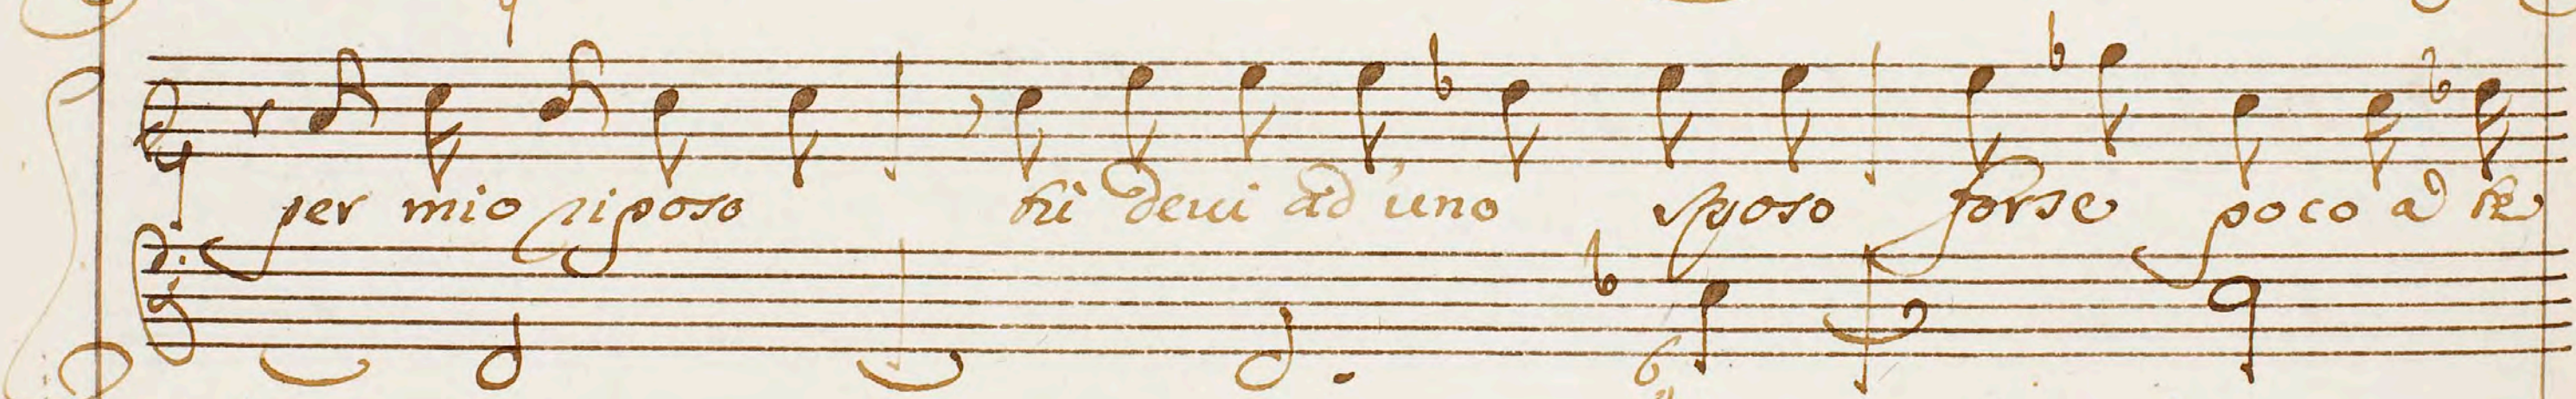 per mio riposo tù deui ad'uno sposo forse poco a te
6